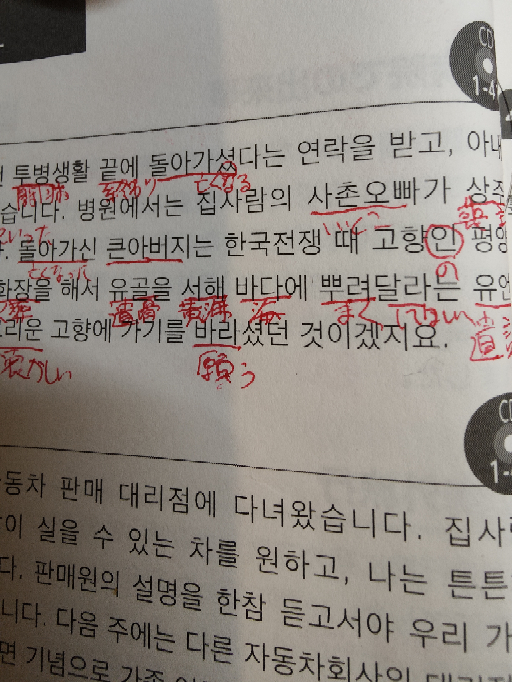 CD
1-4
투병생활 끝에 돌아가셨다는 연락을 받고, 아내
闘病 終わり 亡くなる
습니다. 병원에서는 집사람의 사촌오빠가 상주
いとこ
돌아가신 큰아버지는 한국전쟁 때 고향인 평양
亡くなった の
화장을 해서 유골을 서해 바다에 뿌려달라는 유언
遺骨 黄海 海 まく してほしい 遺言
그리운 고향에 가기를 바라셨던 것이겠지요.
懐かしい 願う
CD
1-
자동차 판매 대리점에 다녀왔습니다. 집사람
많이 실을 수 있는 차를 원하고, 나는 튼튼
다. 판매원의 설명을 한참 듣고서야 우리 가
니다. 다음 주에는 다른 자동차회사의 대리점
면 기념으로 가족